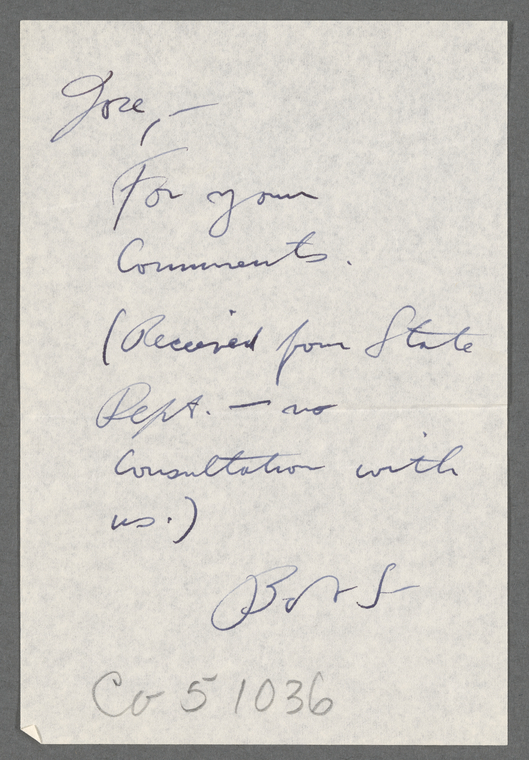 Jose, —
For your
Comments.
(Received from State
Dept. — no
Consultation with
us.)
Bob S
Co 5 1036